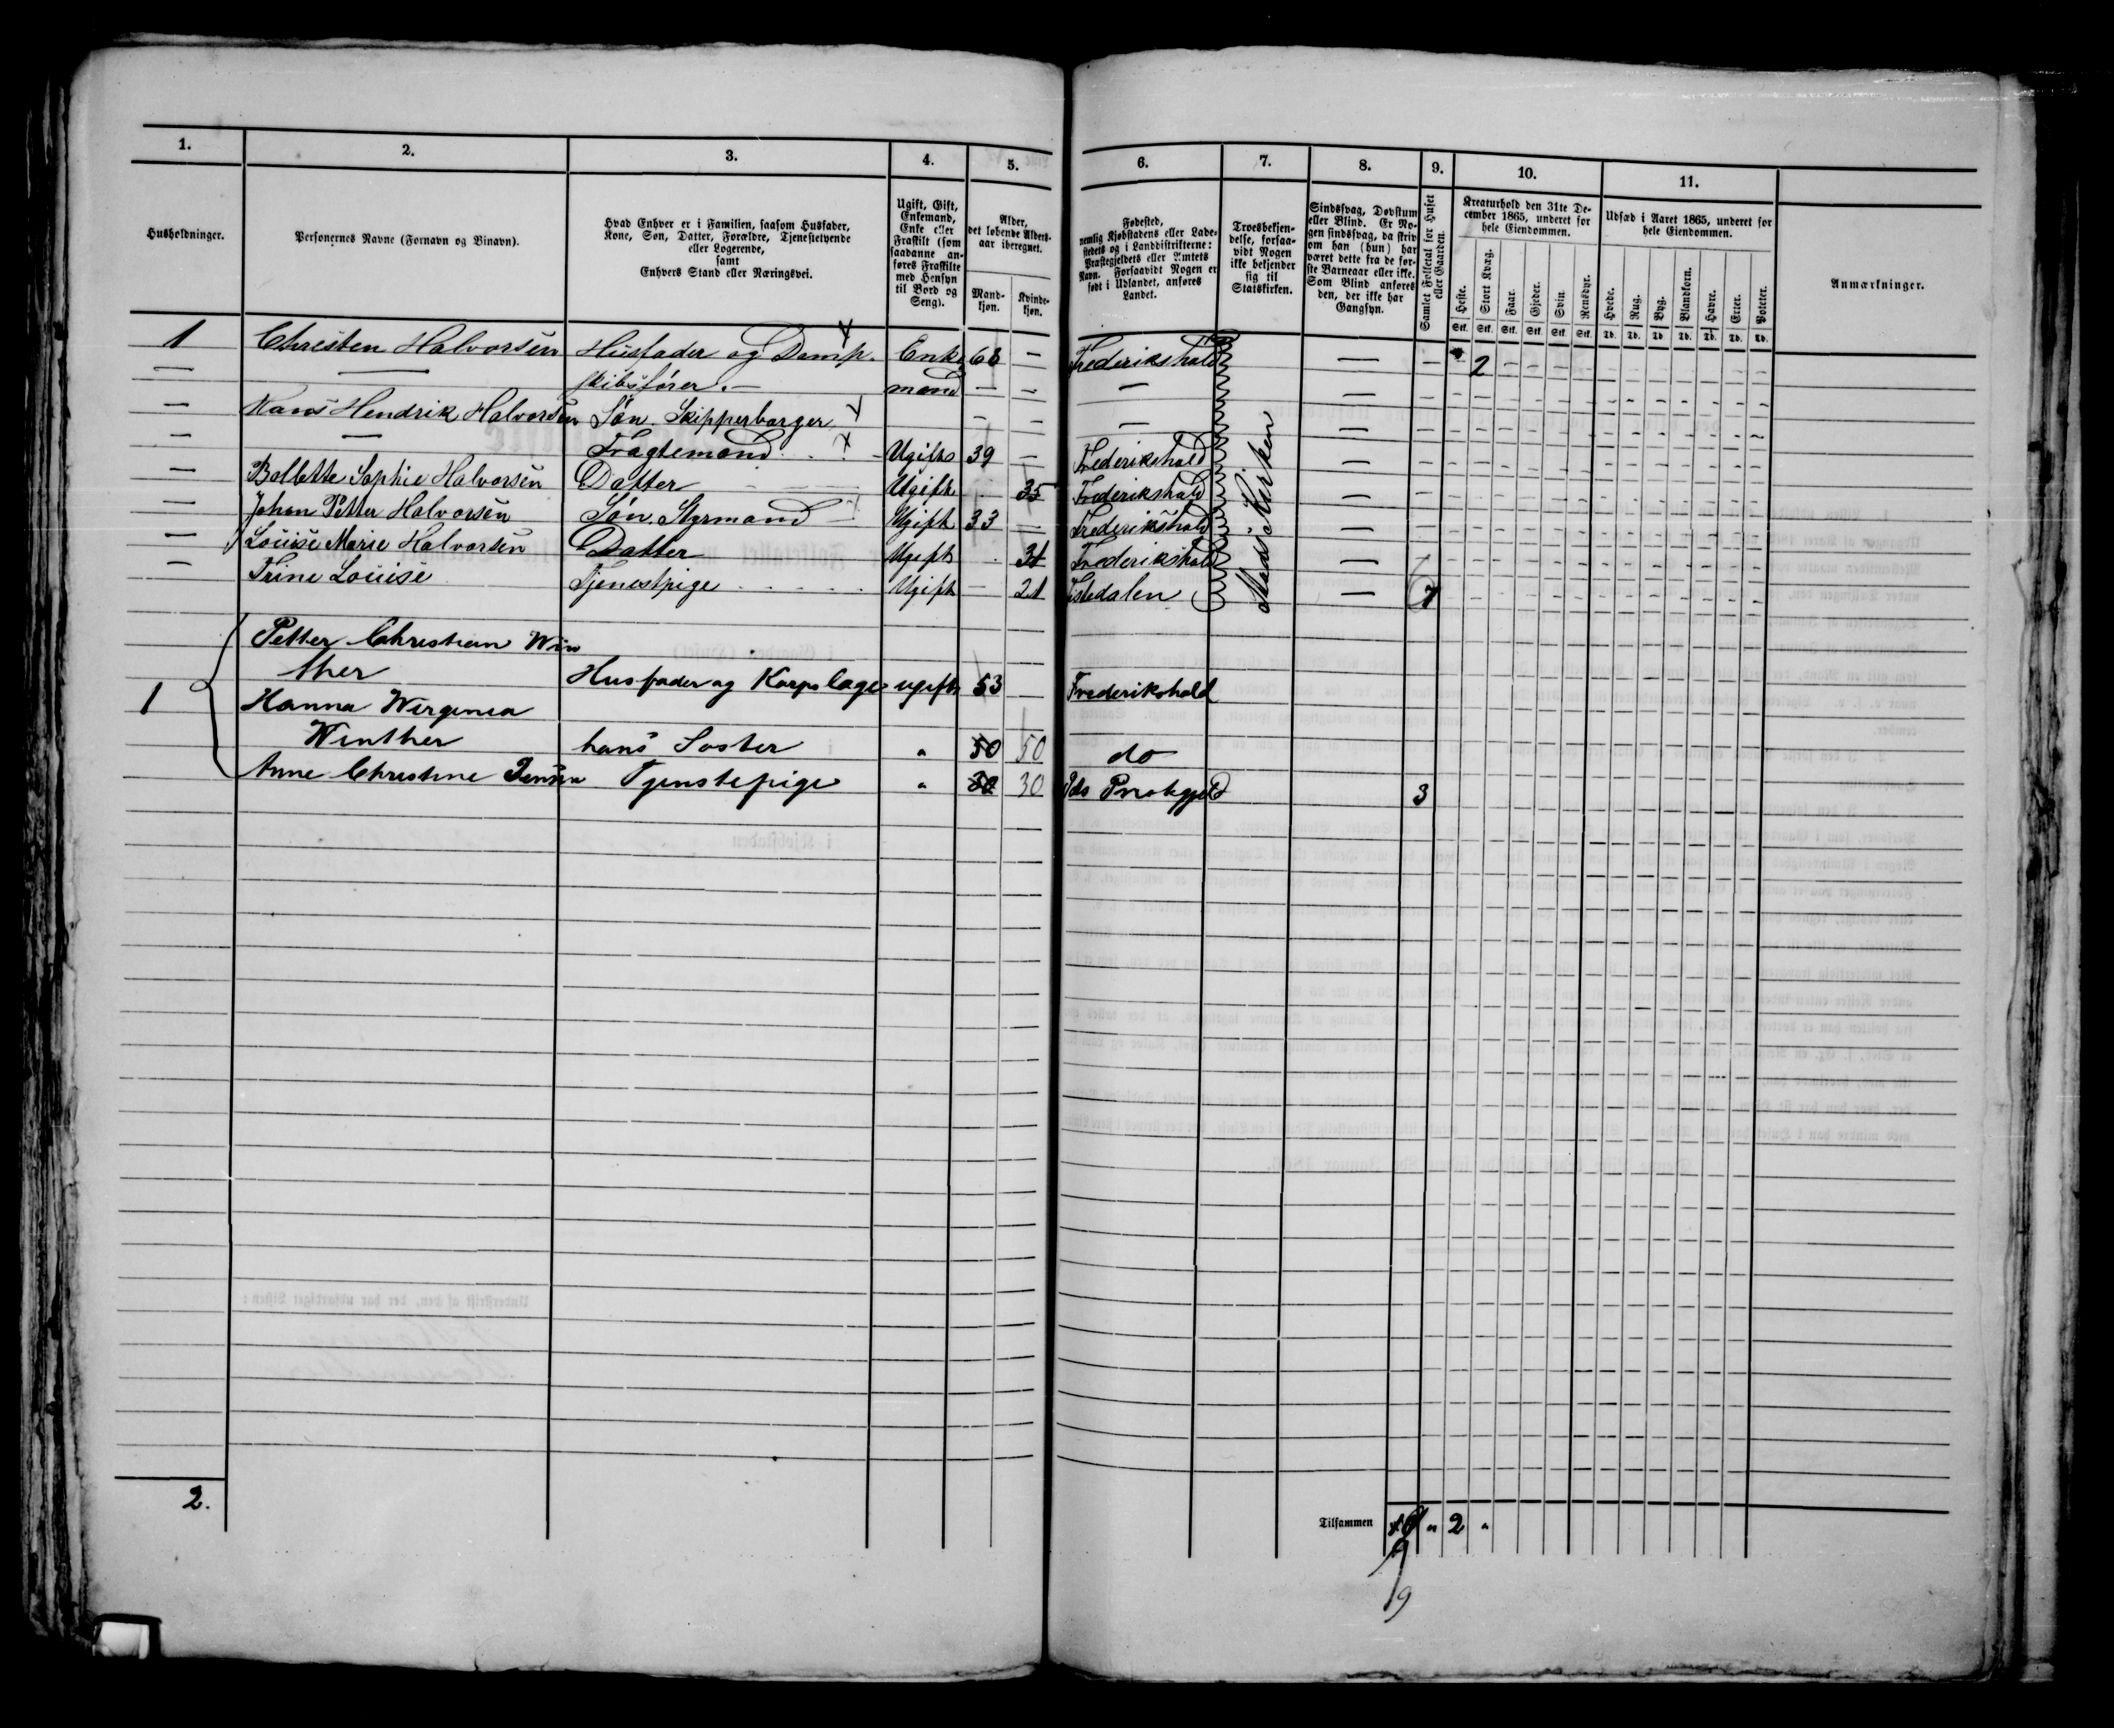 1. 2. 3. 4. 5. 6. 7. 8. 9. 10. 11.
Husholdninger.
Personernes Navne (Fornavn og Binavn).
Hvad Enhver er i Familien, saasom Husfader,
Kone, Søn, Datter, Forældre, Tjenestetyende
eller Logerende,
samt
Enhvers Stand eller Næringsvei.
Ugift, Gift,
Enkemand,
Enke eller
Fraskilt (som
saadanne an-
føres Fraskilte
med Hensyn
til Bord og
Seng).
Alder,
det løbende Alders-
aar iberegnet.
Mand-
kjøn.
Kvinde-
kjøn.
Fødested,
nemlig Kjøbstadens eller Lade-
stedets og i Landdistrikterne:
Præstegjeldets eller Amtets
Navn. Forsaavidt Nogen er
født i Udlandet, anføres
Landet.
Troesbekjen-
delse, forsaa-
vidt Nogen
ikke bekjender
sig til
Statskirken.
Sindssvag, Døvstum
eller Blind. Er No-
gen sindssvag, da skriv
om han (hun) har
været dette fra de før-
ste Barneaar eller ikke.
Som Blind anføres
den, der ikke har
Gangsyn.
Samlet Folketal for Huset
eller Gaarden.
Kreaturhold den 31te De-
cember 1865, underet for
hele Eiendommen.
Heste. Stort Kvæg. Faar. Gjeder. Svin. Rensdyr.
Stk. Stk. Stk. Stk. Stk. Stk.
Udsæd i Aaret 1865, underet for
hele Eiendommen.
Hvede. Rug. Byg. Blandkorn. Havre. Erter. Poteter.
Td. Td. Td. Td. Td. Td. Td.
Anmærkninger.
1 Christen Halvorsen Husfader og Damp. Enke 68 — Frederikshald — — 2
— — skibsfører. — mand — — —
— Hans Hendrik Halvorsen Søn. Skipperborger — — —
— — Fragtemand Ugift 39 — Frederikshald —
— Bollette Sophie Halvorsen Datter Ugift 35 Frederikshald —
— Johan Petter Halvorsen Søn. Styrmand Ugift 33 — Frederikshald —
— Louise Marie Halvorsen Datter Ugift 31 Frederikshald —
— Trine Louise Tjenestpige Ugift — 21 Istedalen — 7
Stads Kirken
Petter Christian Win
ther Husfader og Korpslæge ugift 53 — Frederikshald
1 Hanna Wirginia
Winther hans Søster " 50 50 do
Anne Christine Jensen Tjenstepige " 30 30 Ids Prestegjeld 3
2.
Tilsammen " 2 "
9
9